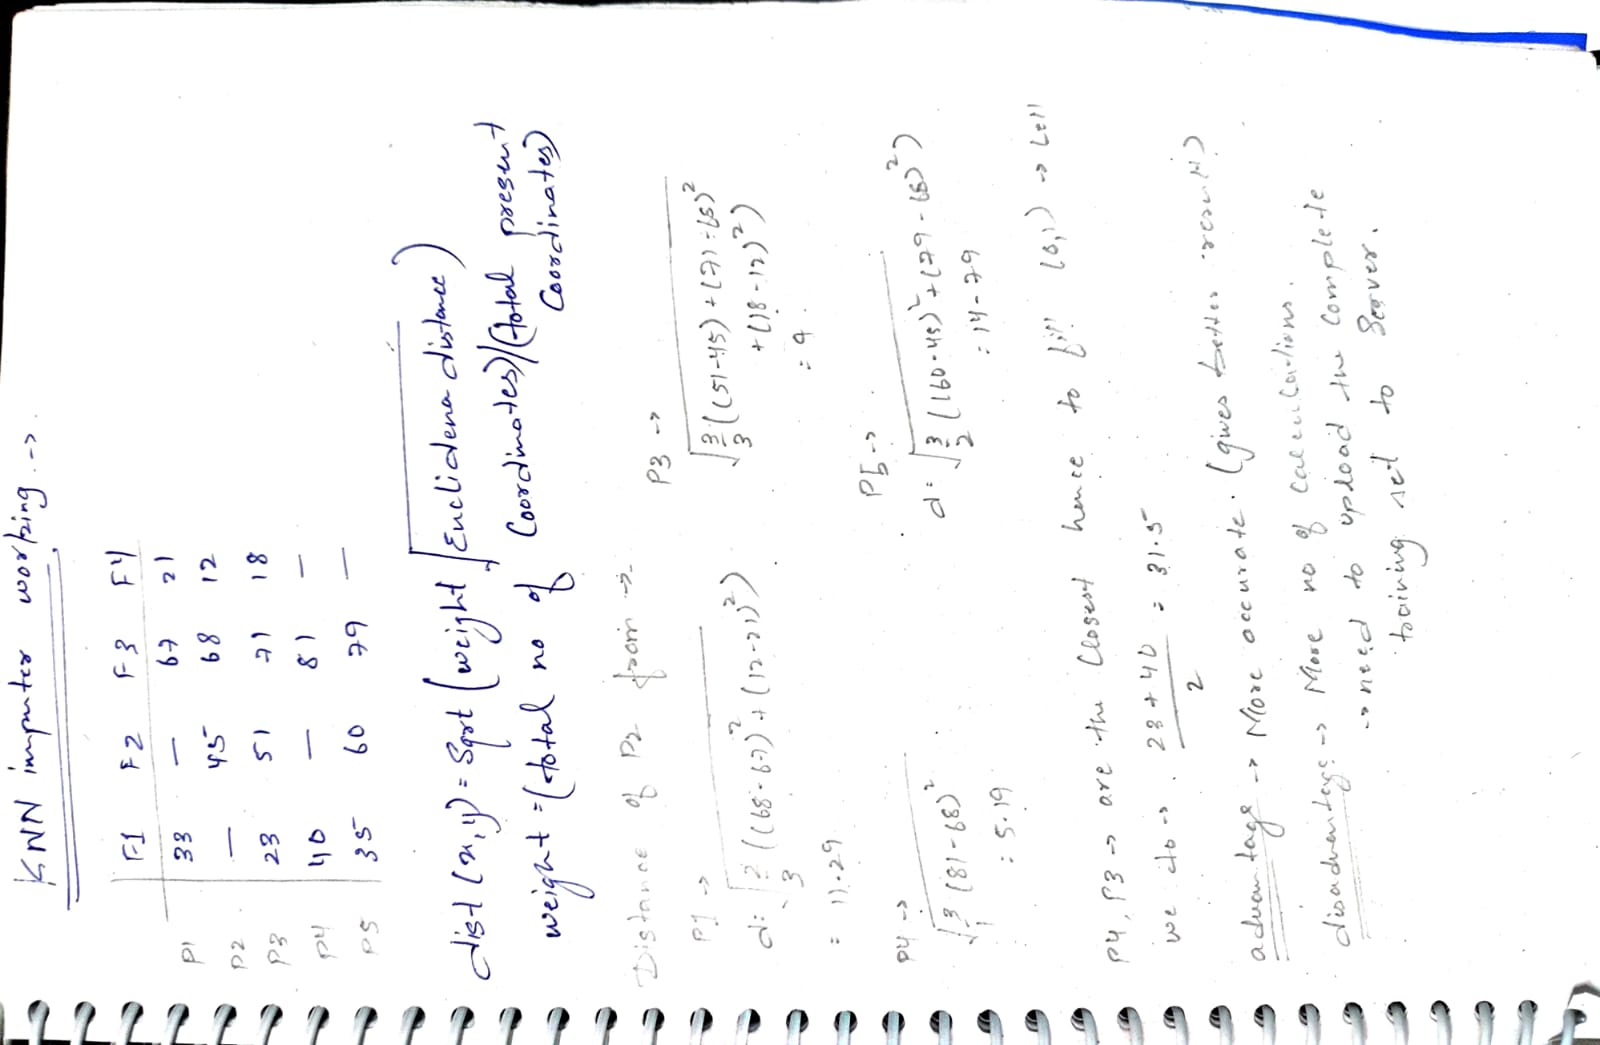 KNN imputer working →
F1 F2 F3 F4
P1 33 — 67 21
P2 — 45 68 12
P3 23 51 71 18
P4 40 — 81 —
P5 35 60 79 —
dist (x,y) = Sqrt (weight * √Euclidena distance)
weight = (total no of Coordinates)/(total present
Coordinates)
Distance of P2 from →
P1 →
d = √3/2 ((68-67)² + (12-21)²)
= 11.29
P3 →
√3/3 ((51-45) + (71-68)²
+ (18-12)²)
= 9
P4 →
√3/1 (81-68)²
= 5.19
P5 →
d = √3/2 ((60-45)² + (79-68)²)
= 14.79
P4, P3 → are the closest hence to fill → cell
we do → 23+40/2 = 31.5
advantage → More accurate. (gives better result)
disadvantage → More no of calculations.
→ need to upload the complete
training set to Server.